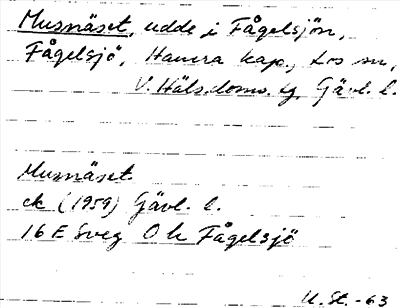 Musnäset, udde i Fågelsjön,
Fågelsjö, Hamra kap., Los sn,
V. Häls. doms. tg, Gävl. l.
Musnäset
ek (1959) Gävl. l.
16 E Sveg O h Fågelsjö
U. St. -63